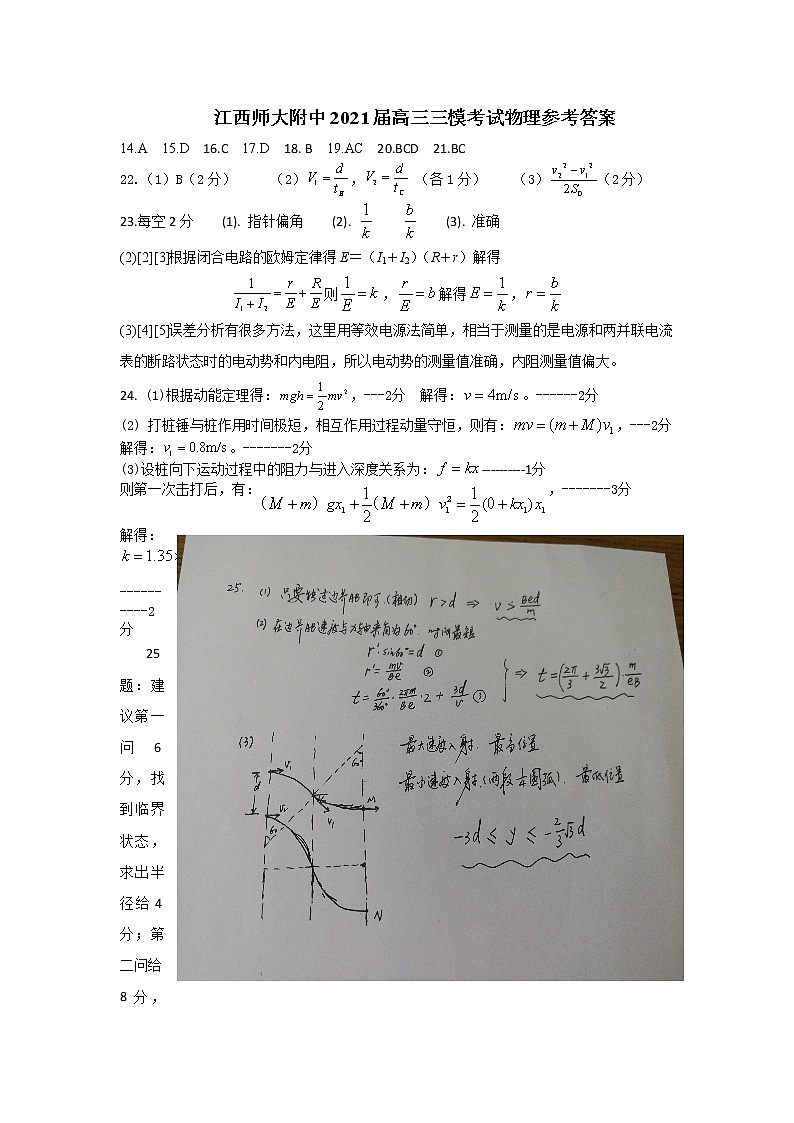 江西师大附中 2021 届高三三模考试物理参考答案
14.A 15.D 16.C 17.D 18. B 19.AC 20.BCD 21.BC
22.（1）B（2 分） （2）V₁ = d/t_B，V₂ = d/t_C （各 1 分） （3）(v₂² − v₁²)/2S_D（2 分）
23.每空 2 分 (1). 指针偏角 (2). 1/k b/k (3). 准确
(2)[2][3]根据闭合电路的欧姆定律得 E＝（I₁+I₂）（R+r）解得
1/(I₁+I₂) = r/E + R/E 则 1/E = k ，r/E = b 解得 E = 1/k ，r = b/k
(3)[4][5]误差分析有很多方法，这里用等效电源法简单，相当于测量的是电源和两并联电流
表的断路状态时的电动势和内电阻，所以电动势的测量值准确，内阻测量值偏大。
24. (1)根据动能定理得：mgh = 1/2 mv² ，---2分 解得：v = 4m/s 。------2分
(2) 打桩锤与桩作用时间极短，相互作用过程动量守恒，则有：mv = (m + M)v₁ ，---2分
解得：v₁ = 0.8m/s 。-------2分
(3)设桩向下运动过程中的阻力与进入深度关系为：f = kx ----------1分
则第一次击打后，有：（M + m）gx₁ + 1/2（M + m）v₁² = 1/2 (0 + kx₁) x₁ ，-------3分
解得：
k = 1.35
------
----2
分
25
题：建
议第一
问 6
分，找
到临界
状态，
求出半
径给 4
分；第
二问给
8 分，
25. (1) 只要转过边界AB即可.(相切) r > d ⇒ v > Bed/m
(2) 在边界AB速度与方向夹角为60°. 时间最短
r'·sin60° = d ①
r' = mv/Be ②
t = 60°/360° · 2πm/Be · 2 + 3d/v ③ } ⇒ t = (2π/3 + 3√3/2) · m/eB
(3) 最大速度入射. 最高位置
最小速度入射.(两段圆弧). 最低位置
−3d ≤ y ≤ −2/3 √3 d
V₁
60°
d
V₂
M
60
V₁
N